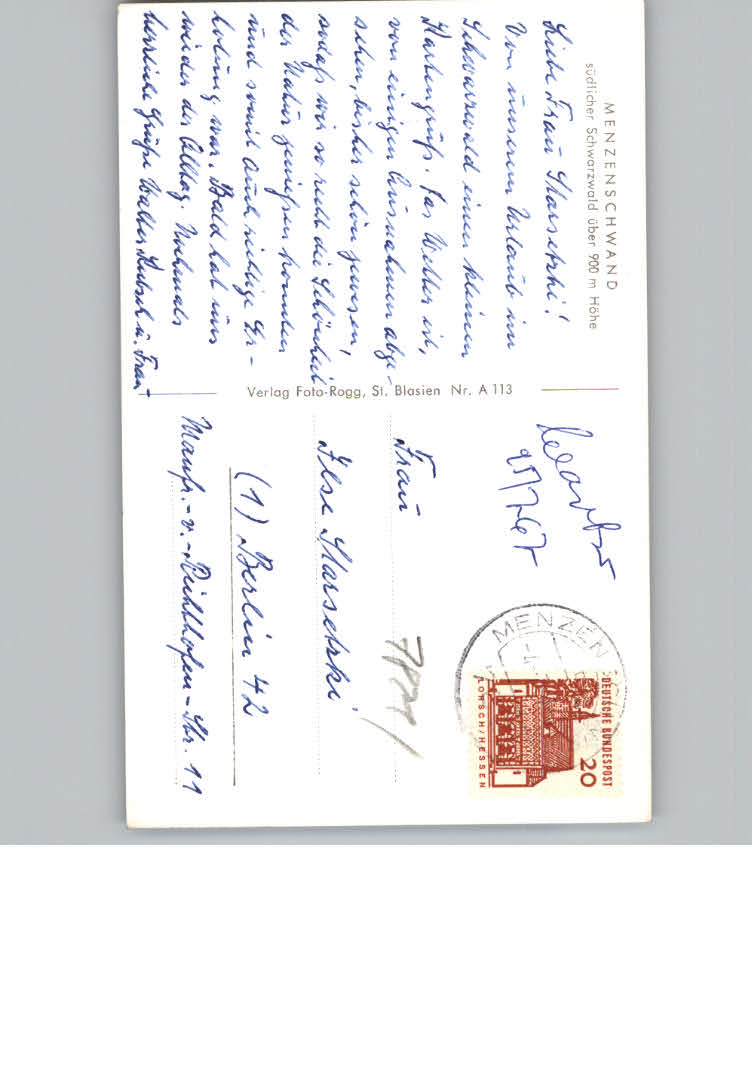 MENZENSCHWAND
südlicher Schwarzwald über 900 m Höhe
Liebe Frau Starsetzki!
Von unserem Urlaub im
Schwarzwald einen kleinen
Kartengruß. Das Wetter ist,
von einigen Ausnahmen abge-
sehen, bisher schön gewesen,
sodaß wir so recht die Schönheit
der Natur genießen konnten
und somit auch richtige Er-
holung war. Bald hat uns
wieder der Alltag. Nochmals
herzliche Grüße Walter u. Frau
Verlag Foto-Rogg, St. Blasien Nr. A 113
Frau
Ilse Starsetzki
(1) Berlin 42
Manfr.-v.-Richthofen-Str. 11
MENZEN
DEUTSCHE BUNDESPOST
20
LORSCH/HESSEN